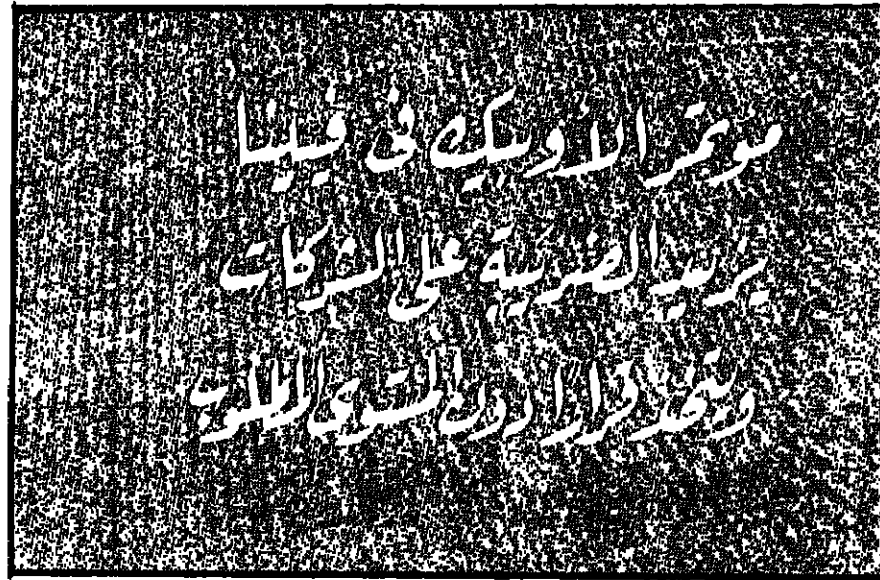 مؤتمر الأوبيك فى فيينا
يزيد الضريبة على الشركات
ويتخذ قرارا دون المستوى المطلوب